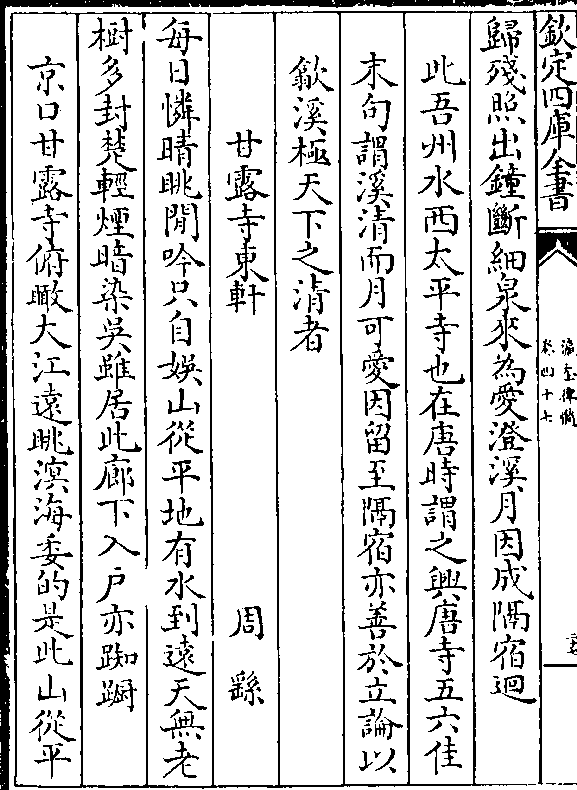 欽定四庫全書
瀛奎律髓
卷四十七
歸殘照出鐘斷細泉來為愛澄溪月因成隔宿迴
此吾州水西太平寺也在唐時謂之興唐寺五六佳
末句謂溪清而月可愛因留至隔宿亦善於立論以
歙溪極天下之清者
甘露寺東軒 周繇
每日憐晴眺閒吟只自娱山從平地有水到遠天無老
樹多封楚輕煙暗染吳雖居此廊下入戶亦踟蹰
京口甘露寺俯瞰大江遠眺溟海委的是此山從平